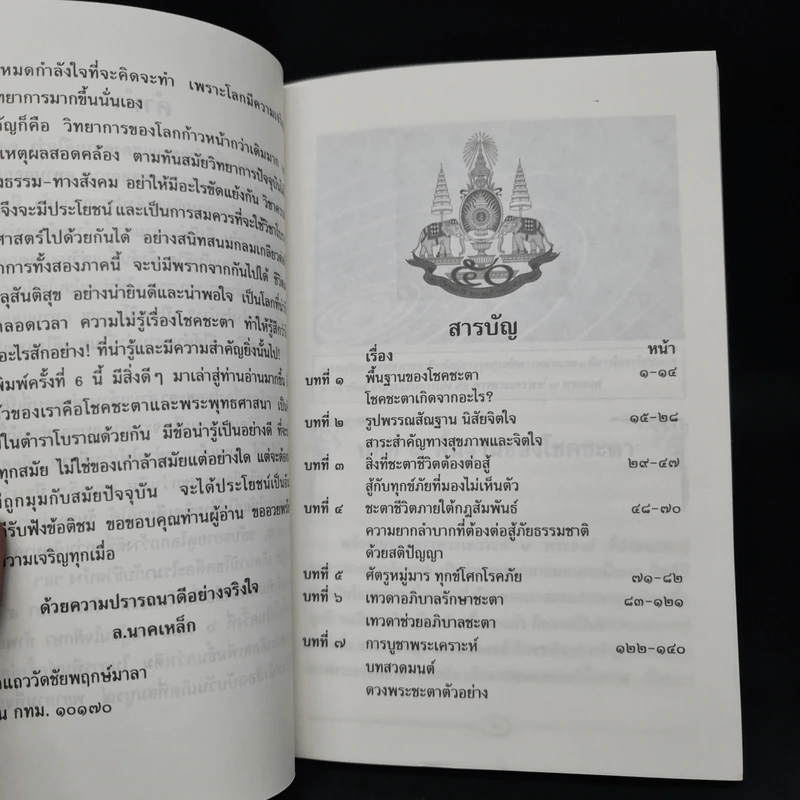 หมดกำลังใจที่จะคิดจะทำ เพราะโลกมีความเจริญ
ทยาการมากขึ้นนั่นเอง
คัญก็คือ วิทยาการของโลกก้าวหน้ากว่าเดิมมาก
เหตุผลสอดคล้อง ตามทันสมัยวิทยาการปัจจุบัน
งธรรม-ทางสังคม อย่าให้มีอะไรขัดแย้งกัน
จึงจะมีประโยชน์ และเป็นการสมควรที่จะใช้วิชา
ศาสตร์ไปด้วยกันได้ อย่างสนิทสนมกลมเกลียว
าการทั้งสองภาคนี้ จะบ่มีพรากจากกันไปได้
ลุสันติสุข อย่างน่ายินดีและน่าพอใจ เป็นโลกที่
ลอดเวลา ความไม่รู้เรื่องโชคชะตา ทำให้รู้สึก
อะไรสักอย่าง! ที่น่ารู้และมีความสำคัญยิ่งนั้นไป!
พิมพ์ครั้งที่ 6 นี้ มีสิ่งดีๆ มาเล่าสู่ท่านอ่านมากขึ้น
ัวของเราคือโชคชะตาและพระพุทธศาสนา
ในตำราโบราณด้วยกัน มีข้อน่ารู้เป็นอย่างดี
ทุกสมัย ไม่ใช่ของเก่าล้าสมัยแต่อย่างใด แต่จะต้อง
ถูกมุมกับสมัยปัจจุบัน จะได้ประโยชน์เป็น
ด้รับฟังข้อติชม ขอขอบคุณท่านผู้อ่าน ขออวยพร
ความเจริญทุกเมื่อ
ด้วยความปรารถนาดีอย่างจริงใจ
ล.นาคเหล็ก
แถววัดชัยพฤกษ์มาลา
น กทม. ๑๐๑๗๐
๕๐
สารบัญ
เรื่อง หน้า
บทที่ ๑ พื้นฐานของโชคชะตา ๑-๑๔
โชคชะตาเกิดจากอะไร?
บทที่ ๒ รูปพรรณสัณฐาน นิสัยจิตใจ ๑๕-๒๘
สาระสำคัญทางสุขภาพและจิตใจ
บทที่ ๓ สิ่งที่ชะตาชีวิตต้องต่อสู้ ๒๙-๔๗
สู้กับทุกข์ภัยที่มองไม่เห็นตัว
บทที่ ๔ ชะตาชีวิตภายใต้กฎสัมพันธ์ ๔๘-๗๐
ความยากลำบากที่ต้องต่อสู้ภัยธรรมชาติ
ด้วยสติปัญญา
บทที่ ๕ ศัตรูหมู่มาร ทุกข์โศกโรคภัย ๗๑-๘๒
บทที่ ๖ เทวดาอภิบาลรักษาชะตา ๘๓-๑๒๑
เทวดาช่วยอภิบาลชะตา
บทที่ ๗ การบูชาพระเคราะห์ ๑๒๒-๑๔๐
บทสวดมนต์
ดวงพระชะตาตัวอย่าง